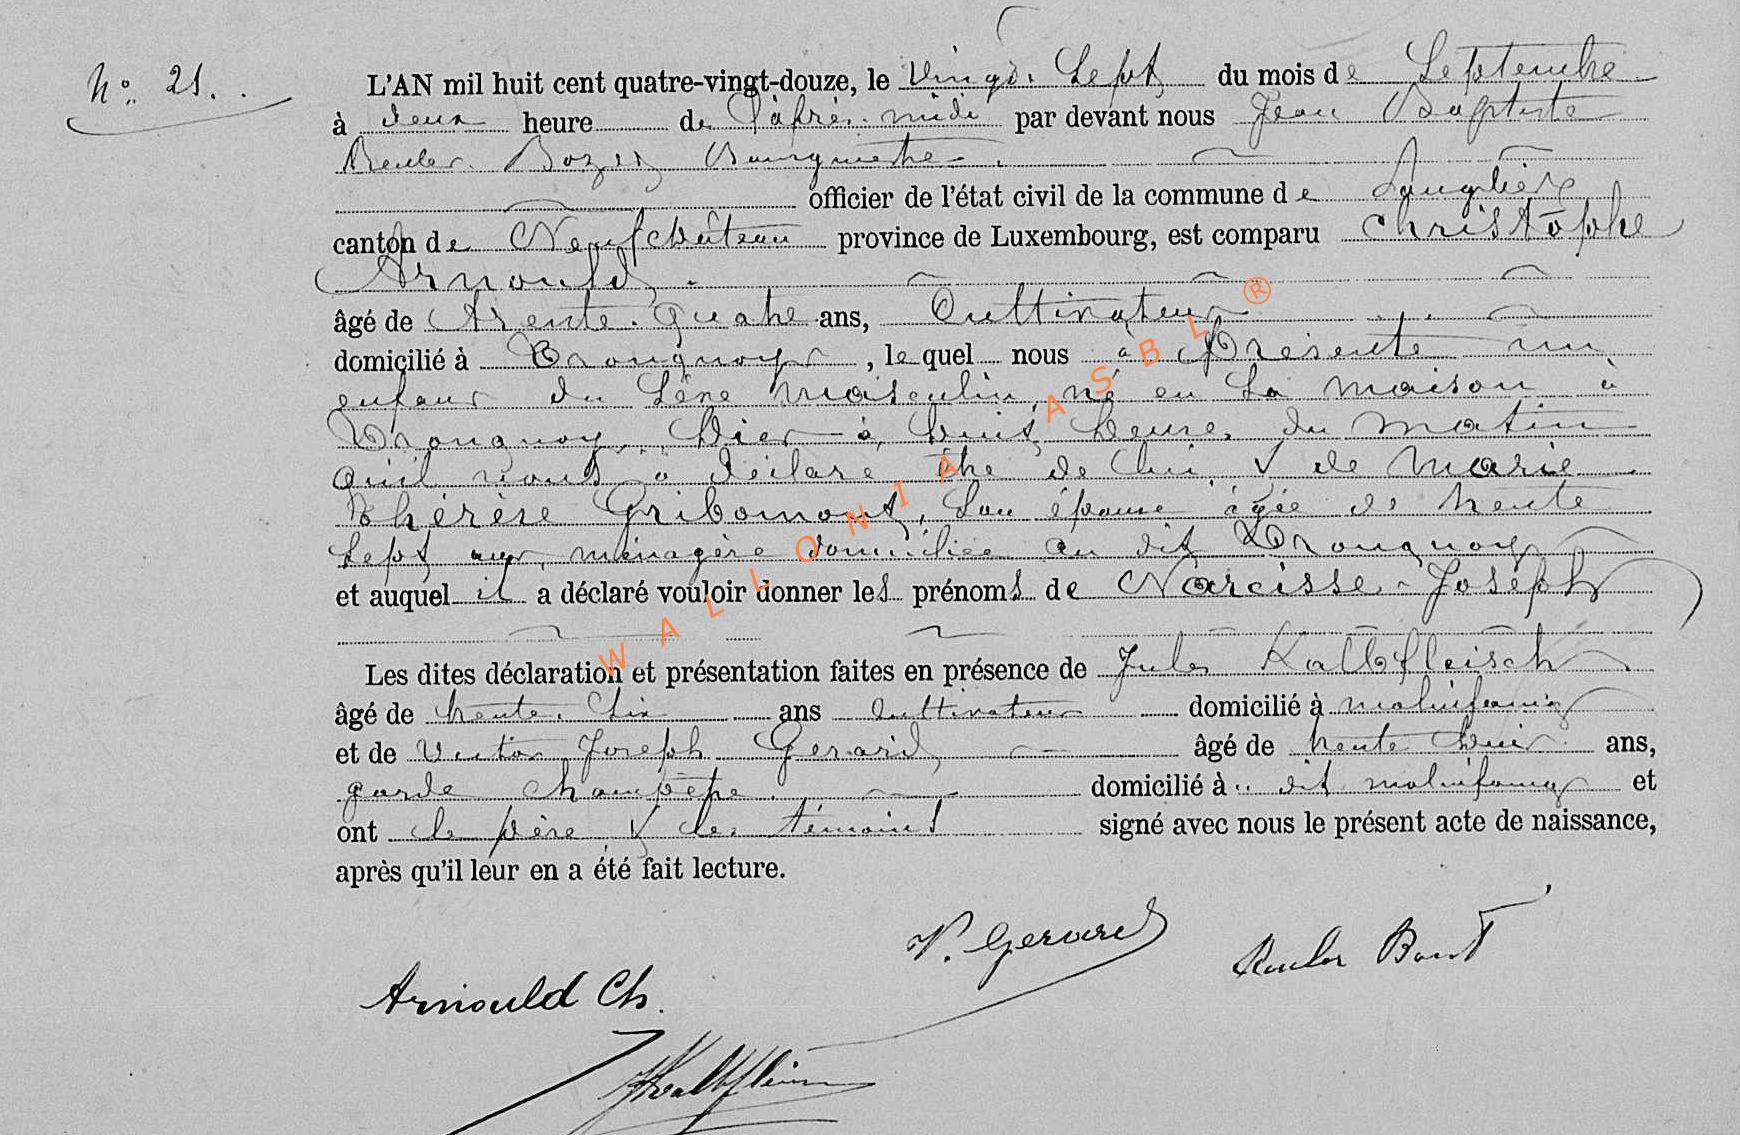 N° 21.
L'AN mil huit cent quatre-vingt-douze, le Vingt Sept du mois de Septembre
à deux heure de l'après-midi par devant nous Jean Baptiste
Reuler Bourgmestre
officier de l'état civil de la commune de Longlier
canton de Neufchâteau province de Luxembourg, est comparu Christophe
Arnould
âgé de trente-quatre ans, Cultivateur
domicilié à Tronquoy, lequel nous a Présenté un
enfant du Sexe Masculin, né en Sa Maison à
Tronquoy, hier à huit heures du Matin
qu'il nous a déclaré être de lui & de Marie
Thérèse Gribomont, Son épouse âgée de trente
Sept ans, ménagère domiciliée au dit Tronquoy
et auquel il a déclaré vouloir donner les prénoms de Narcisse-Joseph
Les dites déclaration et présentation faites en présence de Jules Kalbfleisch
âgé de trente-Six ans Cultivateur domicilié à Molinfaing
et de Victor Joseph Gerard âgé de trente huit ans,
garde champêtre domicilié à dit Molinfaing et
ont le père & les témoins signé avec nous le présent acte de naissance,
après qu'il leur en a été fait lecture.
V. Gerard
Arnould Ch.
WALLONIA ASBL ®